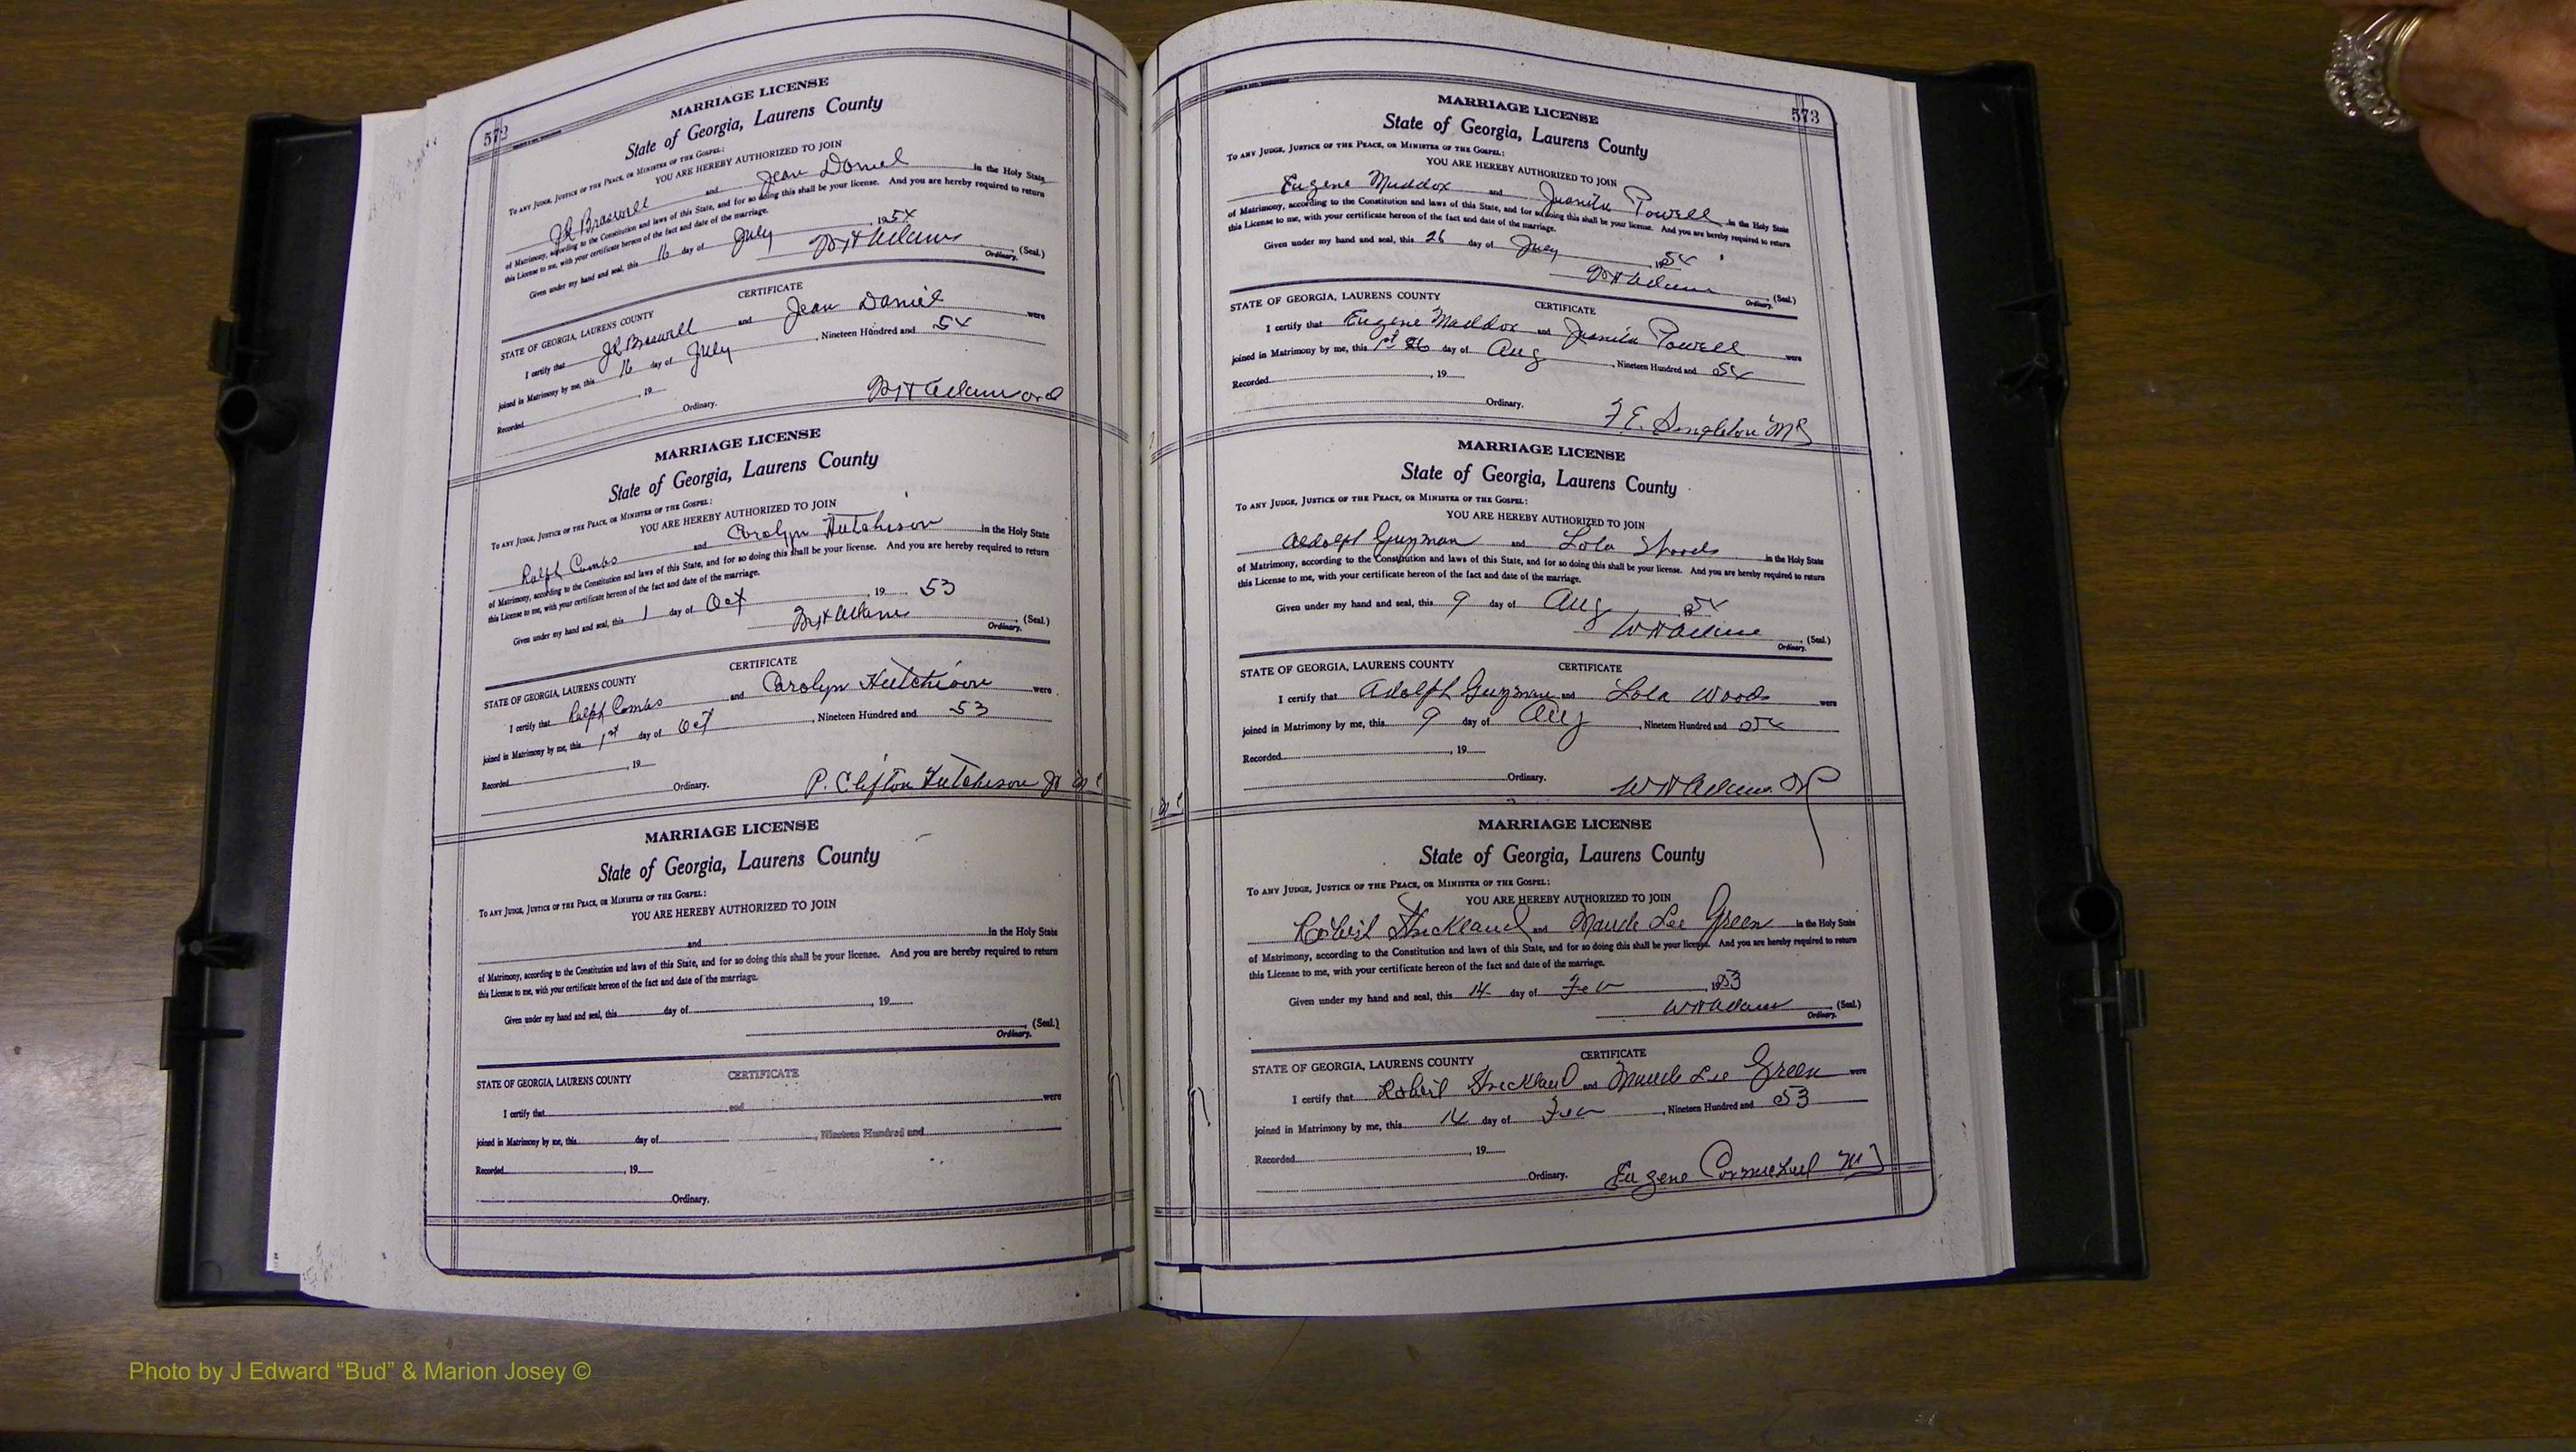 572
MARRIAGE LICENSE
State of Georgia, Laurens County
To any Judge, Justice of the Peace, or Minister of the Gospel:
YOU ARE HEREBY AUTHORIZED TO JOIN
JR Braswell and Jean Daniel in the Holy State
of Matrimony, according to the Constitution and laws of this State, and for so doing this shall be your license. And you are hereby required to return
this License to me, with your certificate hereon of the fact and date of the marriage.
Given under my hand and seal, this 16 day of July, 1954
W H Adams (Seal.)
Ordinary.
CERTIFICATE
STATE OF GEORGIA, LAURENS COUNTY
I certify that JR Braswell and Jean Daniel were
joined in Matrimony by me, this 16 day of July, Nineteen Hundred and 54
Recorded, 19
Ordinary. W H Adams ord
MARRIAGE LICENSE
State of Georgia, Laurens County
To any Judge, Justice of the Peace, or Minister of the Gospel:
YOU ARE HEREBY AUTHORIZED TO JOIN
Ralph Combs and Carolyn Hutchison in the Holy State
of Matrimony, according to the Constitution and laws of this State, and for so doing this shall be your license. And you are hereby required to return
this License to me, with your certificate hereon of the fact and date of the marriage.
Given under my hand and seal, this 1 day of Oct, 19 53
W H Adams (Seal.)
Ordinary.
CERTIFICATE
STATE OF GEORGIA, LAURENS COUNTY
I certify that Ralph Combs and Carolyn Hutchison were
joined in Matrimony by me, this 1st day of Oct, Nineteen Hundred and 53
Recorded, 19
Ordinary. P. Clifton Hutcheson
MARRIAGE LICENSE
State of Georgia, Laurens County
To any Judge, Justice of the Peace, or Minister of the Gospel:
YOU ARE HEREBY AUTHORIZED TO JOIN
and in the Holy State
of Matrimony, according to the Constitution and laws of this State, and for so doing this shall be your license. And you are hereby required to return
this License to me, with your certificate hereon of the fact and date of the marriage.
Given under my hand and seal, this day of, 19
(Seal.)
Ordinary.
CERTIFICATE
STATE OF GEORGIA, LAURENS COUNTY
I certify that and were
joined in Matrimony by me, this day of, Nineteen Hundred and
Recorded, 19
Ordinary.
573
MARRIAGE LICENSE
State of Georgia, Laurens County
To any Judge, Justice of the Peace, or Minister of the Gospel:
YOU ARE HEREBY AUTHORIZED TO JOIN
Eugene Maddox and Juanita Powell in the Holy State
of Matrimony, according to the Constitution and laws of this State, and for so doing this shall be your license. And you are hereby required to return
this License to me, with your certificate hereon of the fact and date of the marriage.
Given under my hand and seal, this 26 day of July, 1954
W H Adams (Seal.)
Ordinary.
CERTIFICATE
STATE OF GEORGIA, LAURENS COUNTY
I certify that Eugene Maddox and Juanita Powell were
joined in Matrimony by me, this 1st day of Aug, Nineteen Hundred and 54
Recorded, 19
Ordinary. F E. Singleton MG
MARRIAGE LICENSE
State of Georgia, Laurens County
To any Judge, Justice of the Peace, or Minister of the Gospel:
YOU ARE HEREBY AUTHORIZED TO JOIN
Adolph Guzman and Lola Woods in the Holy State
of Matrimony, according to the Constitution and laws of this State, and for so doing this shall be your license. And you are hereby required to return
this License to me, with your certificate hereon of the fact and date of the marriage.
Given under my hand and seal, this 9 day of Aug 1954
W H Adams (Seal.)
Ordinary.
CERTIFICATE
STATE OF GEORGIA, LAURENS COUNTY
I certify that Adolph Guzman and Lola Woods were
joined in Matrimony by me, this 9 day of Aug, Nineteen Hundred and 54
Recorded, 19
Ordinary. W H Adams
MARRIAGE LICENSE
State of Georgia, Laurens County
To any Judge, Justice of the Peace, or Minister of the Gospel:
YOU ARE HEREBY AUTHORIZED TO JOIN
Robert Strickland and Maude Lee Green in the Holy State
of Matrimony, according to the Constitution and laws of this State, and for so doing this shall be your license. And you are hereby required to return
this License to me, with your certificate hereon of the fact and date of the marriage.
Given under my hand and seal, this 14 day of Feb, 1953
W H Adams (Seal.)
Ordinary.
CERTIFICATE
STATE OF GEORGIA, LAURENS COUNTY
I certify that Robert Strickland and Maude Lee Green were
joined in Matrimony by me, this 14 day of Feb, Nineteen Hundred and 53
Recorded, 19
Ordinary. Eugene Carmichael
Photo by J Edward “Bud” & Marion Josey ©